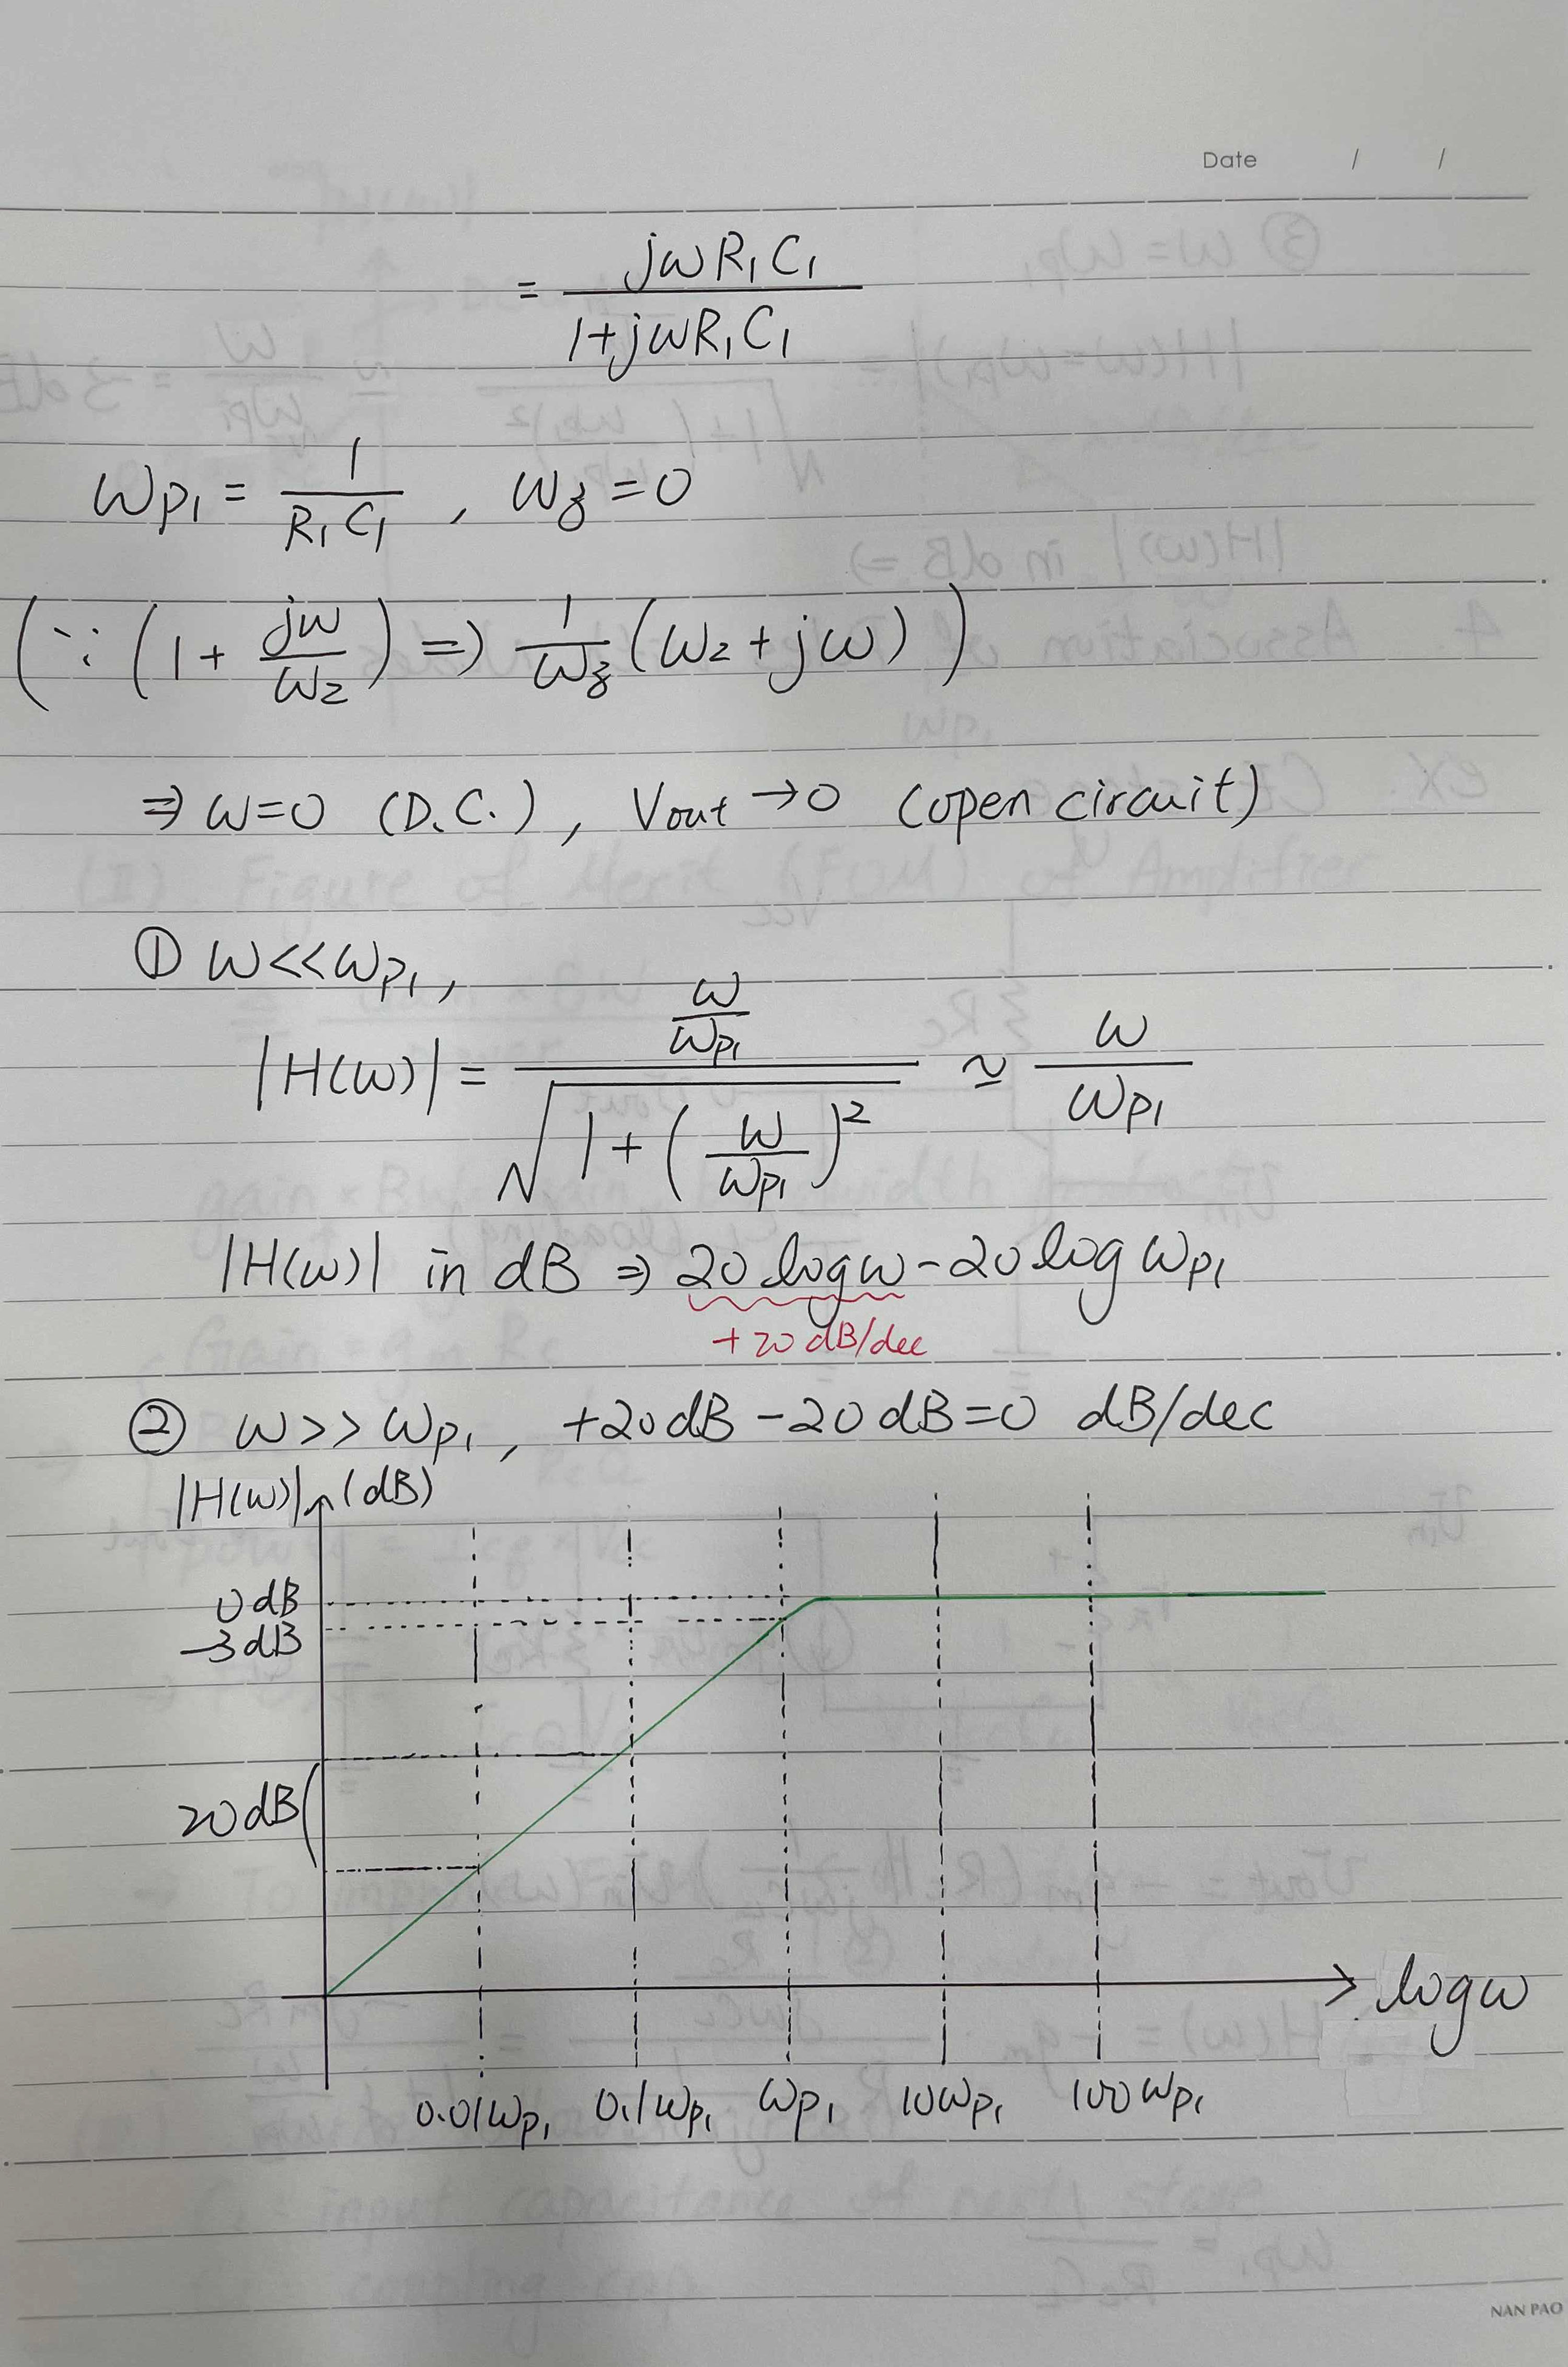 Date / /
= jωR₁C₁ / (1+jωR₁C₁)
ωp₁ = 1/(R₁C₁) , ωz = 0
(∵ (1 + jω/ωz) ⇒ 1/ωz (ωz + jω))
⇒ ω=0 (D.C.) , Vout → 0 (open circuit)
① ω << ωp₁ ,
|H(ω)| = (ω/ωp₁) / √(1 + (ω/ωp₁)²) ≃ ω/ωp₁
|H(ω)| in dB ⇒ 20 log ω - 20 log ωp₁
+20 dB/dec
② ω >> ωp₁ , +20dB - 20dB = 0 dB/dec
|H(ω)| (dB)
0 dB
-3 dB
20 dB
log ω
0.01ωp₁ 0.1ωp₁ ωp₁ 10ωp₁ 100ωp₁
NAN PAO